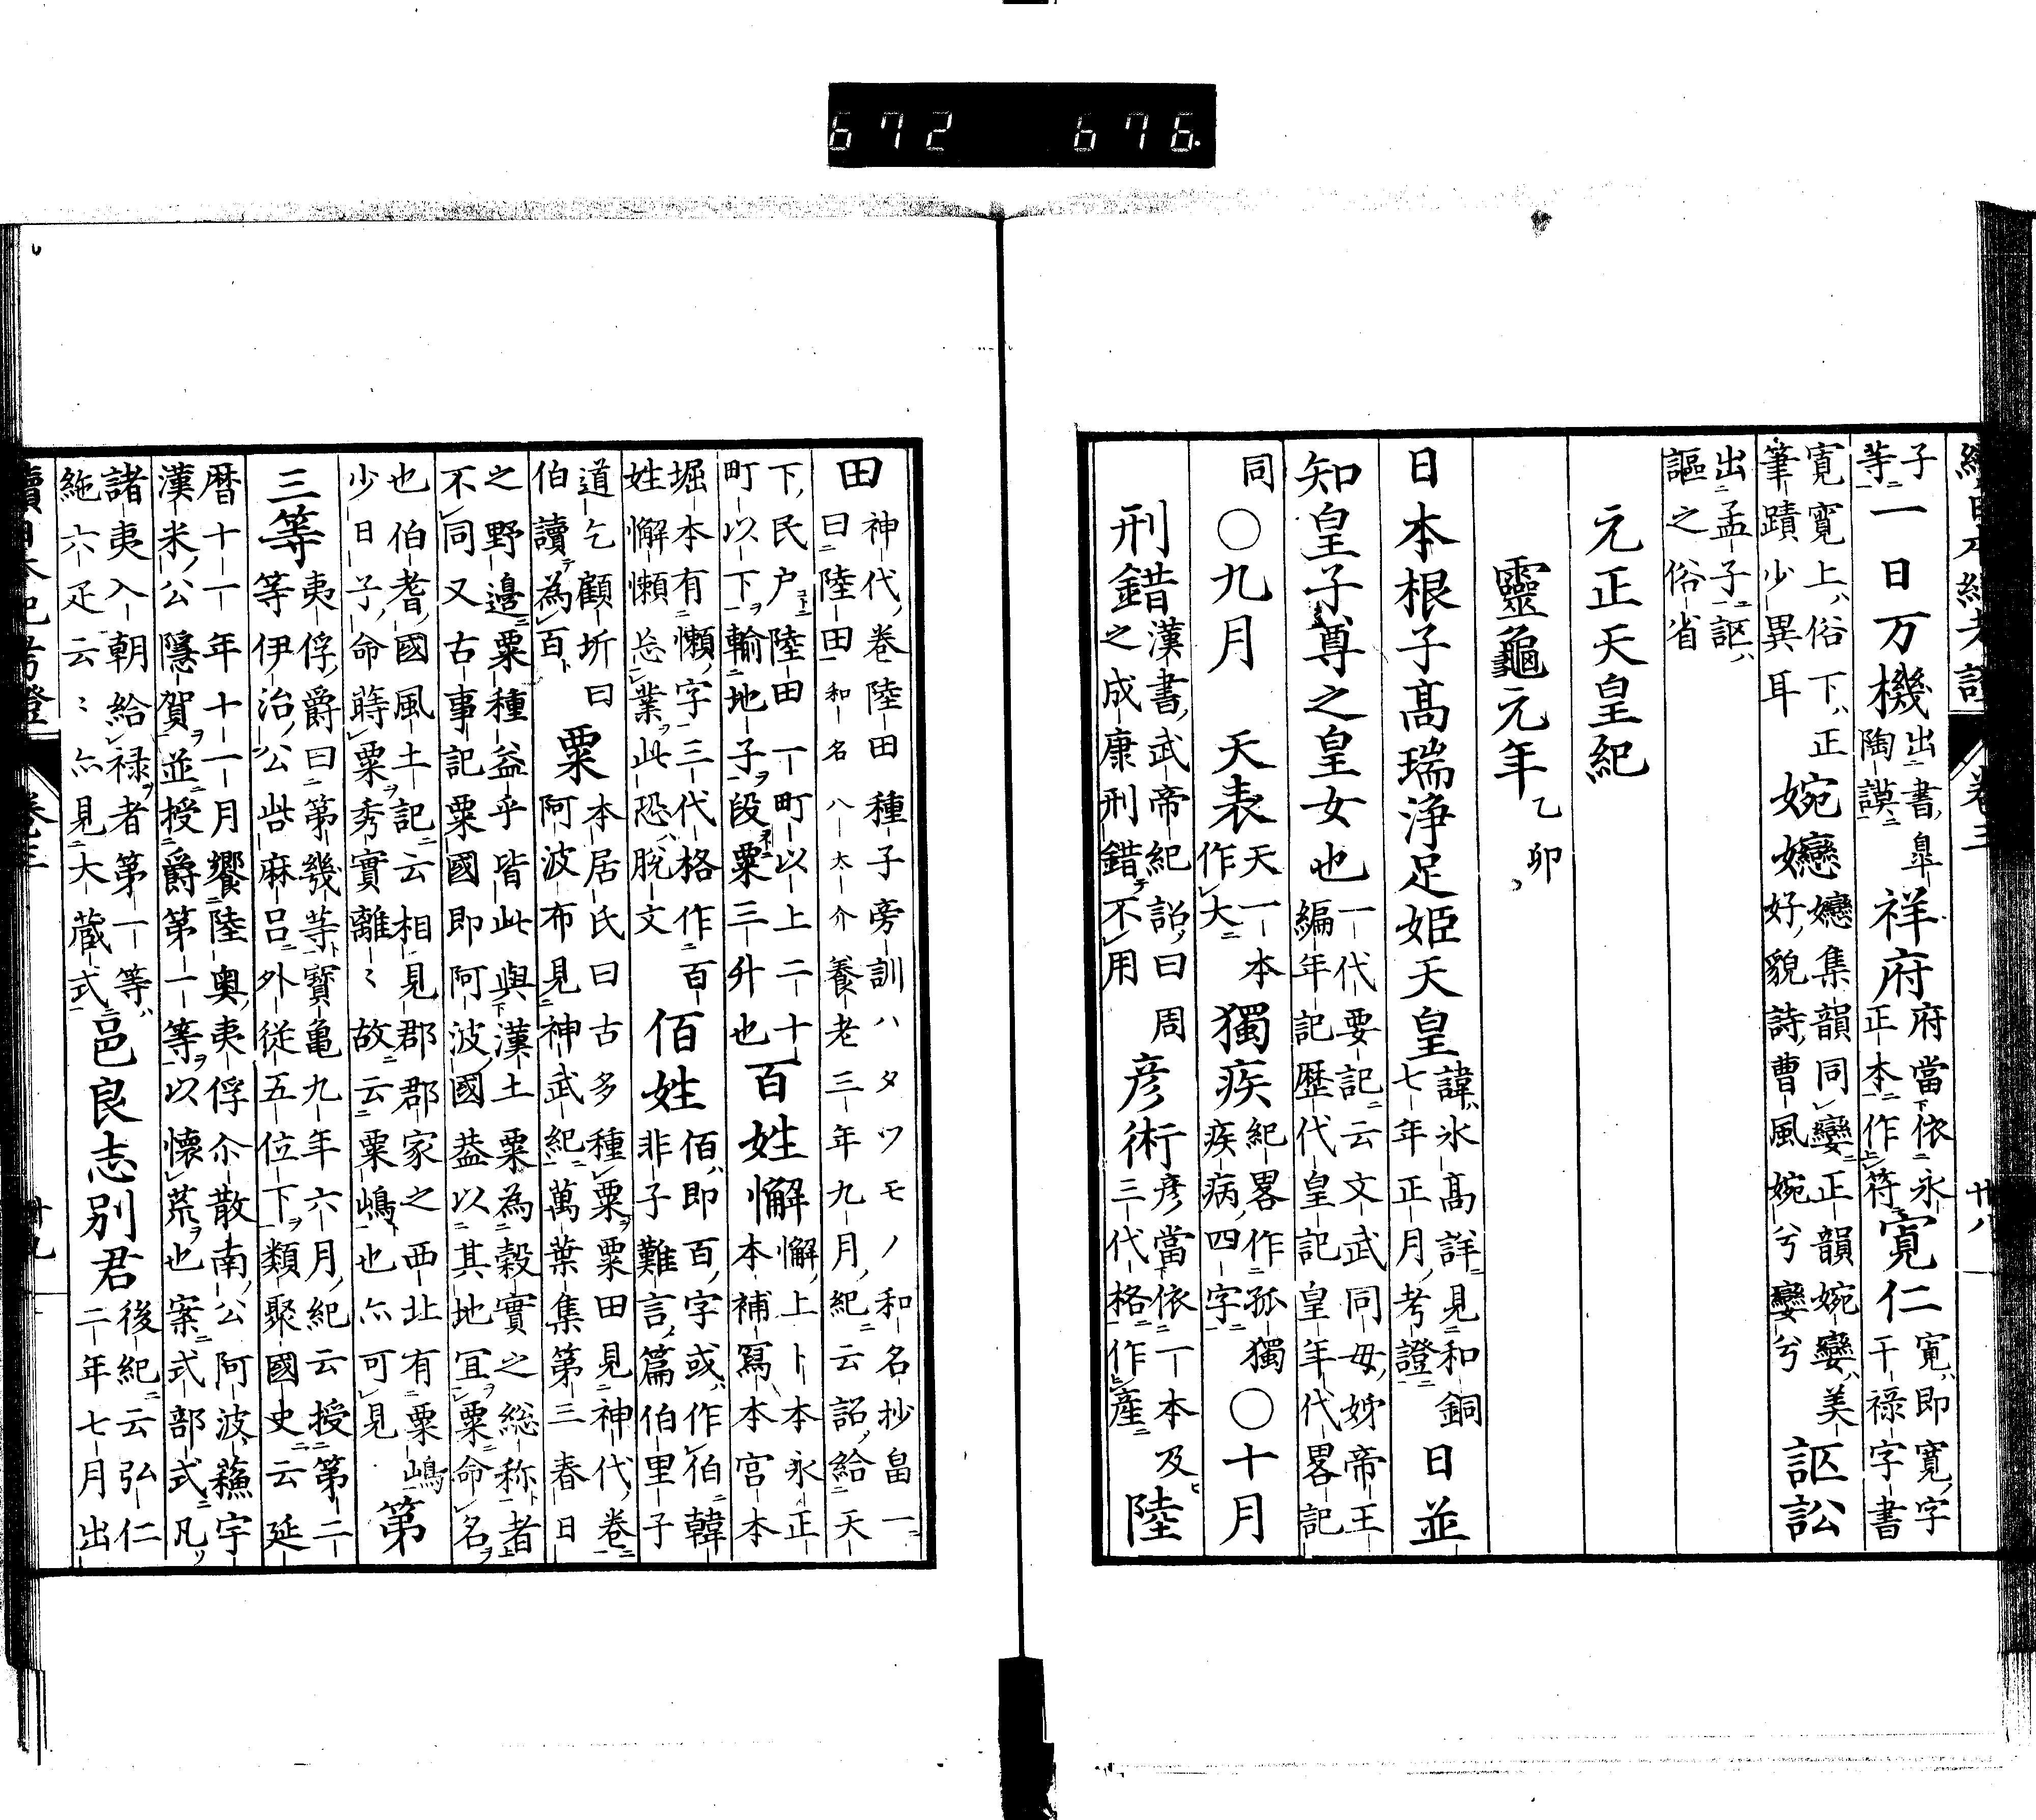 672 676.
續日本紀考證 卷三 廿八
子等一日万機出書皐陶謨祥府府當依永正本作符寛仁寛即寬字干祿字書
寛寬上俗下正筆蹟少異耳婉戀戀集韻同孌正韻婉孌美好貌詩曹風婉兮孌兮謳訟
出孟子謳謳之俗省
元正天皇紀
靈龜元年乙卯
日本根子髙瑞淨足姫天皇諱氷髙詳見和銅七年正月考證日並
知皇子尊之皇女也一代要記云文武同母姊帝王編年記歷代皇記皇年代畧記
同〇九月天表天一本作大獨疾紀畧作孤獨疾病四字〇十月
刑錯漢書武帝紀詔曰周之成康刑錯不用彦術彦當依一本及三代格作產陸
田神代卷陸田種子旁訓ハタツモノ和名抄畠一曰陸田和名八太介養老三年九月紀云詔給天
下民户陸田一町以上二十町以下輸地子段粟三升也百姓懈懈上卜本永正堀本補冩本宮本
堀本有懶字三代格作百姓懈懶怠業此恐脫文佰姓佰即百字或作伯韓非子難言篇伯里子
道乞顧圻曰伯讀為百粟本居氏曰古多種粟粟田見神代卷阿波布見神武紀萬葉集第三春日
之野邊粟種益乎皆此與漢土粟為穀實之総称者不同又古事記粟國即阿波國葢以其地宜粟命名
也伯耆國風土記云相見郡郡家之西北有粟嶋少日子命蒔粟秀實離〻故云粟嶋也亦可見第
三等夷俘爵曰第幾等寳亀九年六月紀云授第二等伊治公呰麻呂外從五位下類聚國史云延
暦十一年十一月饗陸奥夷俘尒散南公阿波蘓宇漢米公隱賀並授爵第一等以懷荒也案式部式凡
諸夷入朝給禄者第一等絁六疋云〻亦見大蔵式邑良志別君後紀云弘仁二年七月出
續日本紀考證 卷三 廿九